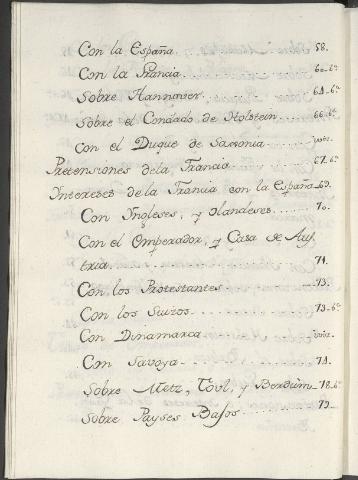 Con la España. 58.
Con la Francia. 60. bᵗᵃ
Sobre Hannover. 64. bᵗᵃ
Sobre el Condado de Holstein 66. bᵗᵃ
Con el Duque de Saxonia
Pretensiones dela Francia 67. bᵗᵃ
Intereses de la Francia con la españa 69.
Con Yngleses, y olandeses 70.
Con el Omperador, y Casa de Aus
tria. 71.
Con los Protestantes 73.
Con los Suizos 73. bᵗᵃ
Con Dinamarca
Con Savoya 74.
Sobre Metz, Toul, y Berdum 78. bᵗᵃ
Sobre Payses Bajos 79.